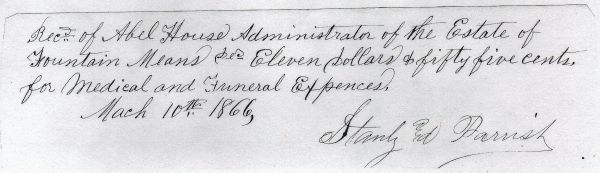 Recd. of Abel House Administrator of the Estate of
Fountain Means Eleven Dollars & fifty five cents.
for Medical and Funeral Expences.
Mach 10th. 1866,
Stanly Parrish